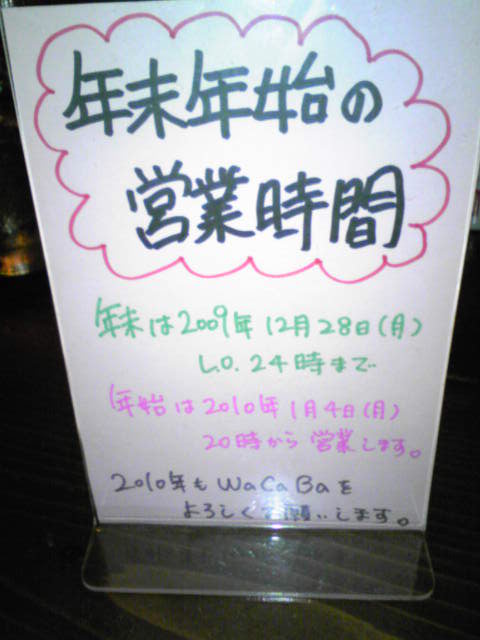 年末年始の
営業時間
年末は2009年12月28日(月)
L.O.24時まで
年始は2010年1月4日(月)
20時から営業します。
2010年もWaCaBaを
よろしくお願いします。